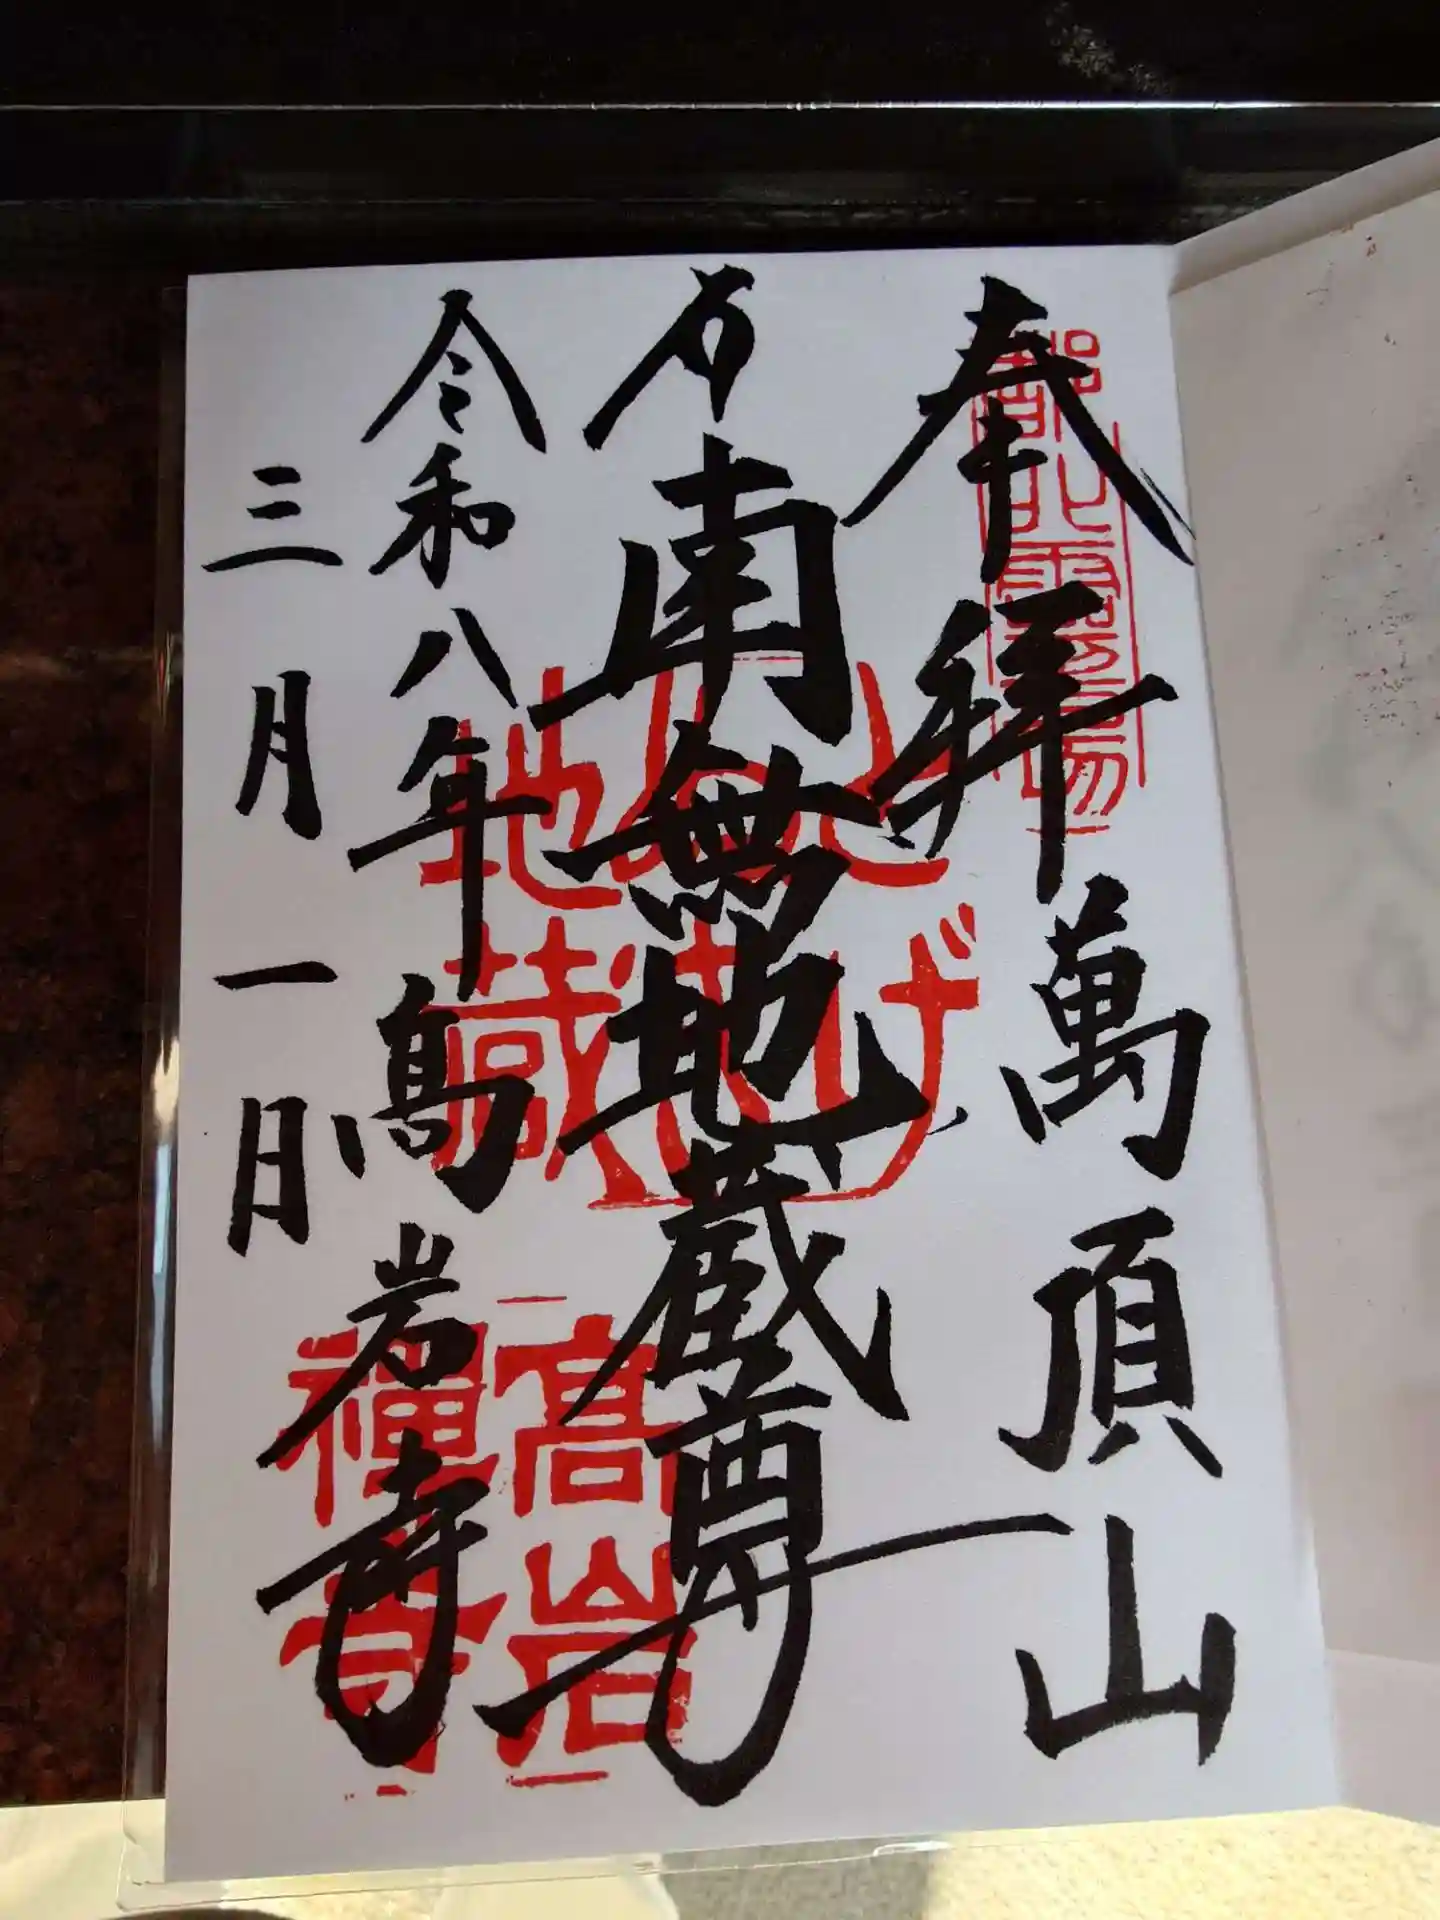 奉拝 萬頂山
南無地蔵尊
令和八年 髙岩寺
三月一日
とげ
ぬき
地蔵
髙岩
禪寺